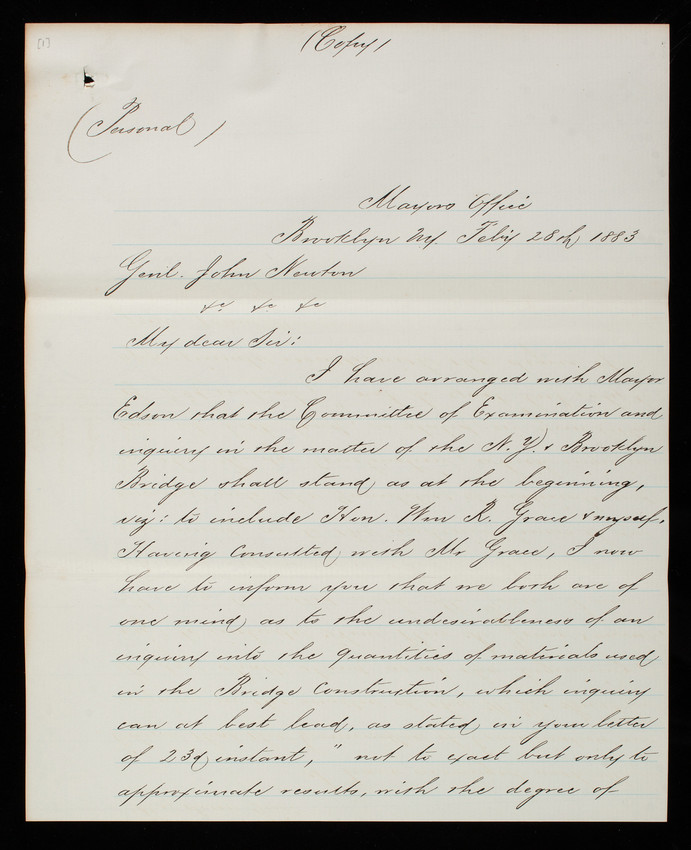 [1]
(Copy)
(Personal)
Mayors Office
Brooklyn NY. Feb'y 28th 1883
Genl. John Newton
&c &c &c
My dear Sir:
I have arranged with Mayor
Edson that the Committee of Examination and
inquiry in the matter of the N.Y. & Brooklyn
Bridge shall stand as at the beginning,
viz: to include Hon. Wm R. Grace & myself.
Having consulted with Mr Grace, I now
have to inform you that we both are of
one mind as to the undesirableness of an
inquiry into the quantities of materials used
in the Bridge construction, which inquiry
can at best lead, as stated in your letter
of 23d instant, " not to exact but only to
approximate results, with the degree of